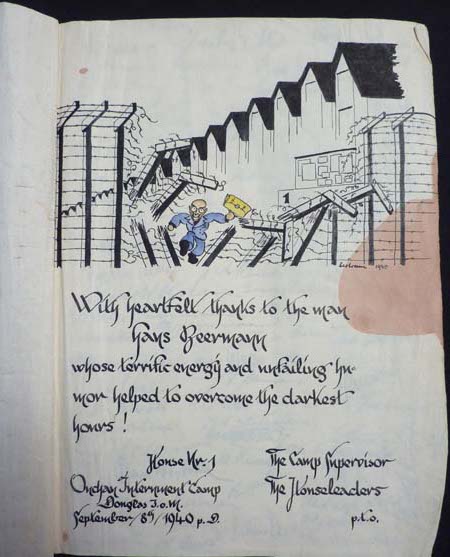 1
1940
With heartfelt thanks to the man
Hans Beermann
whose terrific energy and unfailing hu-
mor helped to overcome the darkest
hours!
House Nr. 1
The Camp Supervisor
Onchan Internment Camp
The Houseleaders
Douglas I.o.M.
September/8th/1940 p.D.
p.t.o.